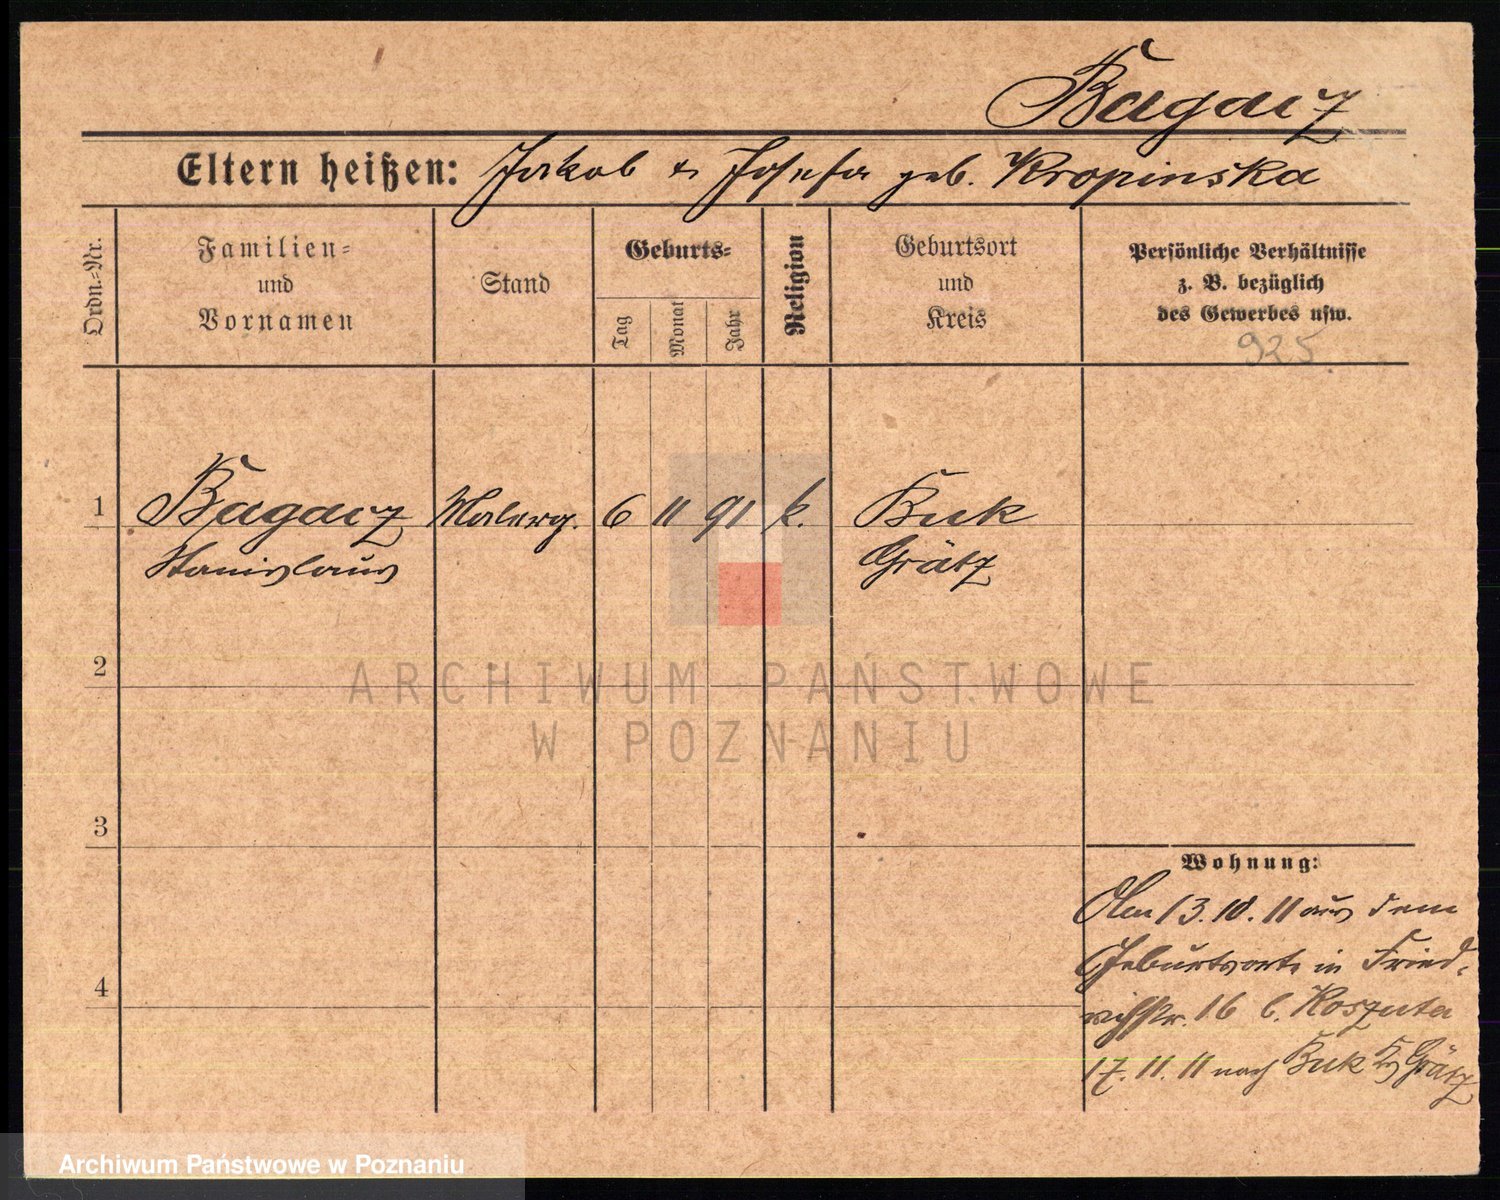 Bagacz
Eltern heißen: Jakob & Josefa geb. Kropinska
Ordn.-Nr.
Familien-
und
Vornamen
Stand
Geburts-
Tag
Monat
Jahr
Religion
Geburtsort
und
Kreis
Persönliche Verhältnisse
z. B. bezüglich
des Gewerbes usw.
925
1 Bagacz Malerg. 6 11 91 k. Buk
Stanislaus Grätz
2
ARCHIWUM PAŃSTWOWE
W POZNANIU
3
Wohnung:
Am 13.10.11 aus dem
Geburtsorte in Fried-
4
richstr. 16 b. Koszuta
17.11.11 nach Buk Grätz
Archiwum Państwowe w Poznaniu